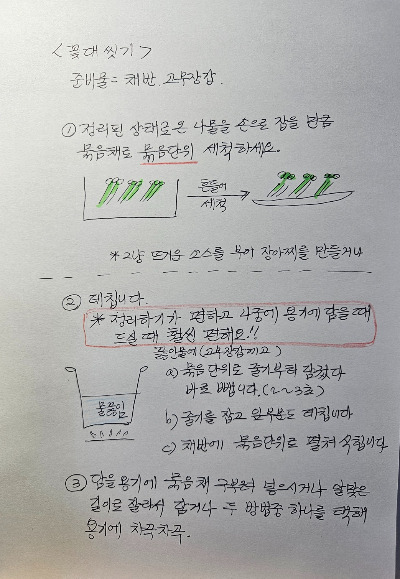 <꽃대 씻기>
준비물 = 채반, 고무장갑.
① 정리된 상태로온 나물을 손으로 잡을 만큼
묶음채로 묶음단위 세척하세요.
흔들어
세척
* 그냥 뜨거운 소스를 부어 장아찌를 만들거나
② 데칩니다.
* 정리하기가 편하고 나중에 용기에 담을때
드실때 훨씬 편해요!!
끓인물에 (고무장갑끼고)
a) 묶음 단위로 줄기부터 담궜다
바로 뺍니다. (2~3초)
물끓임
b) 줄기를 잡고 잎부분도 데칩니다
c) 채반에 묶음단위로 펼쳐 식힙니다
③ 담을용기에 묶음채 구부려 넣으시거나 알맞은
길이로 잘라서 담거나 두 방법중 하나를 택해
용기에 차곡차곡.